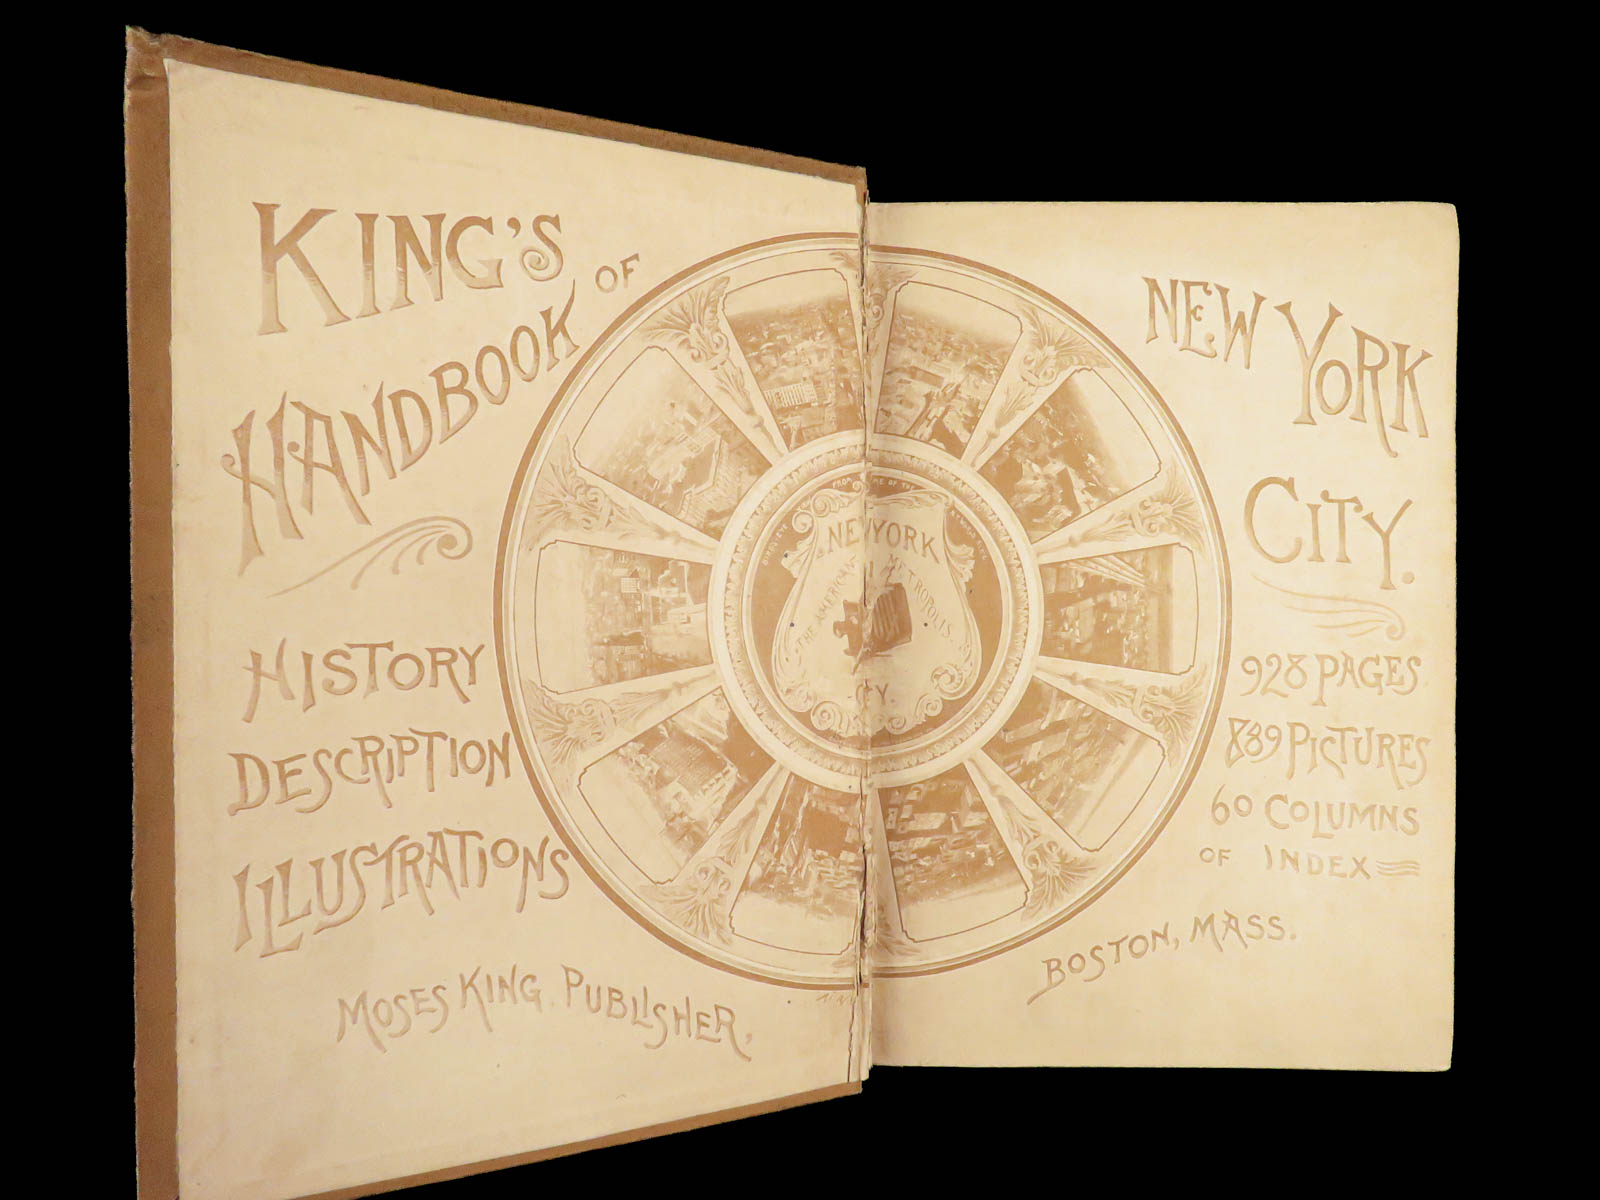 KING'S
HANDBOOK OF
HISTORY
DESCRIPTION
ILLUSTRATIONS
MOSES KING. PUBLISHER,
NEW YORK
THE AMERICAN METROPOLIS.
NEW YORK
CITY.
928 PAGES
889 PICTURES
60 COLUMNS
OF INDEX
BOSTON, MASS.